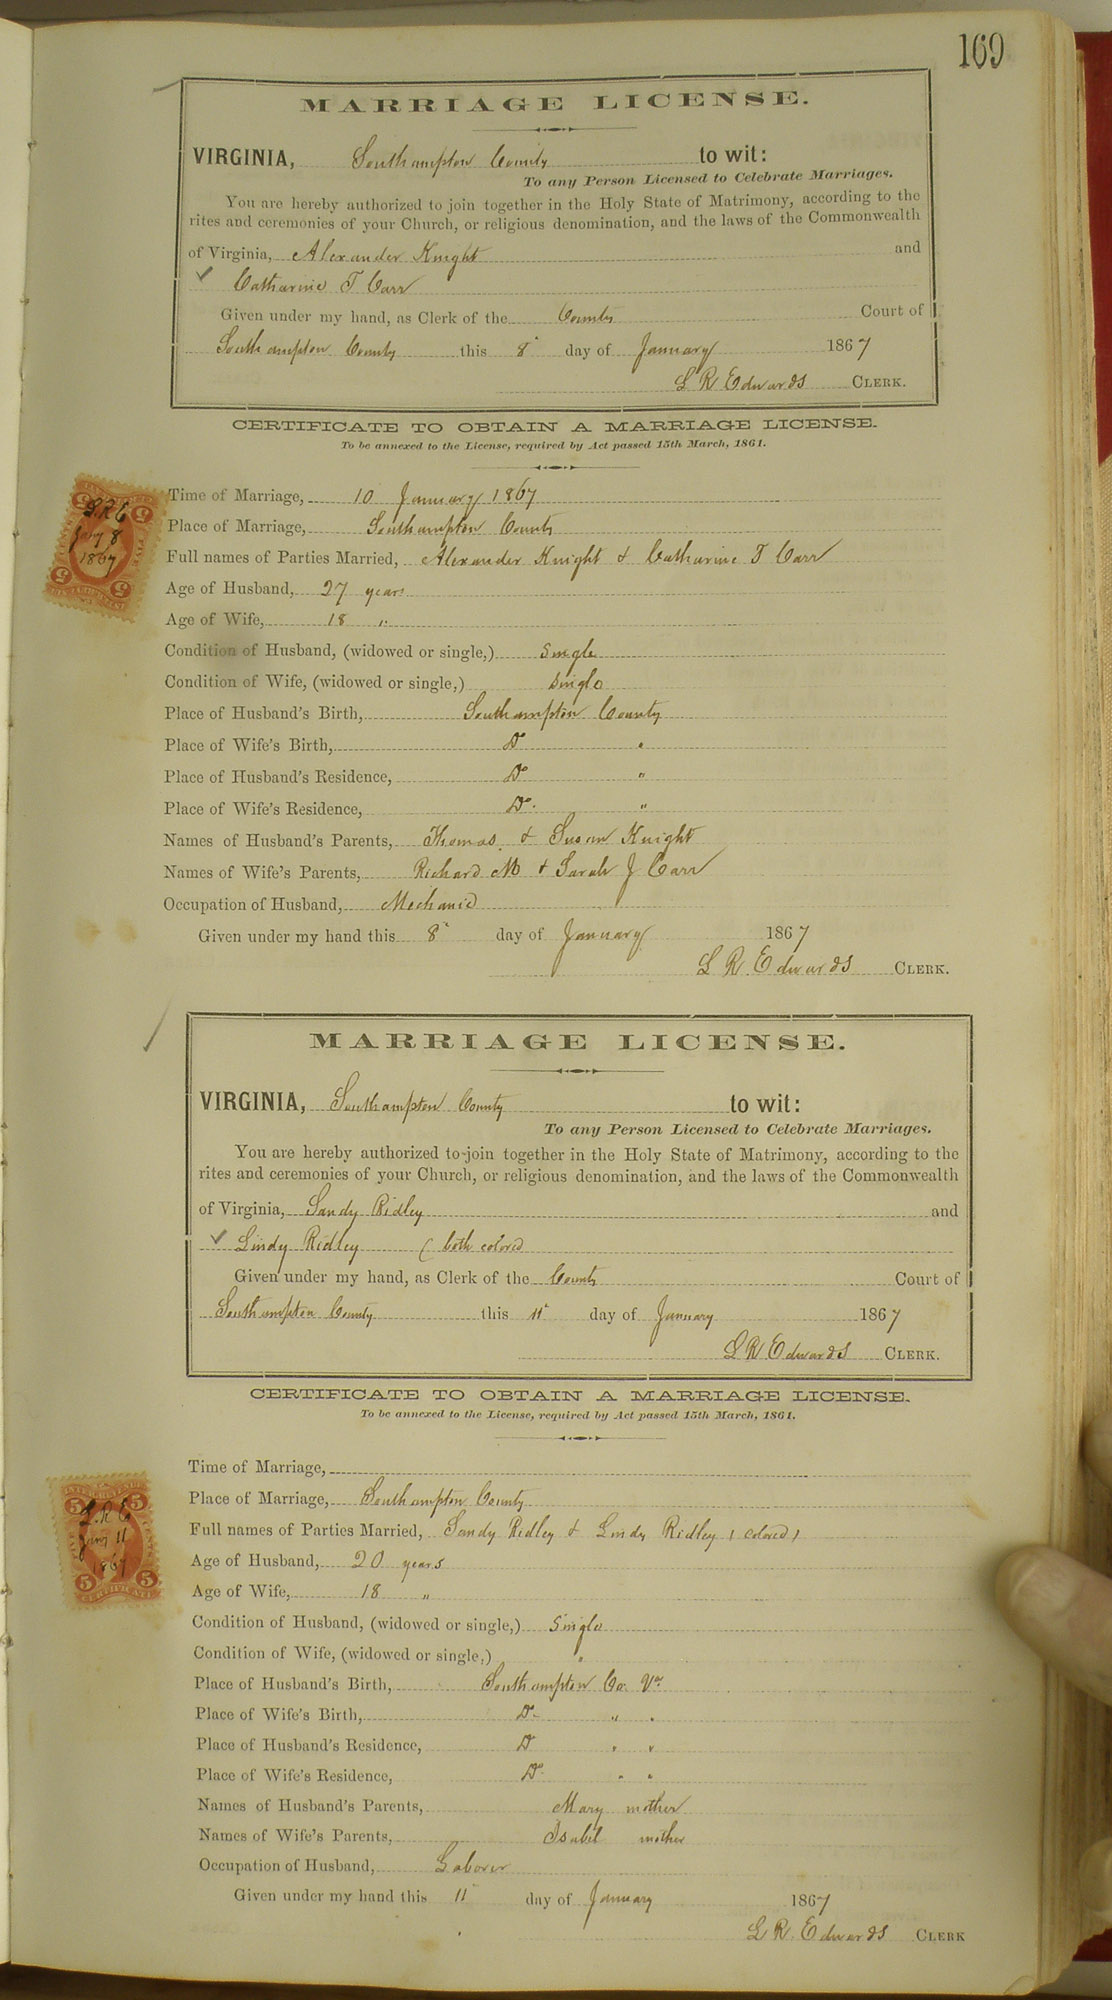 169
MARRIAGE LICENSE.
VIRGINIA, Southampton County to wit:
To any Person Licensed to Celebrate Marriages.
You are hereby authorized to join together in the Holy State of Matrimony, according to the
rites and ceremonies of your Church, or religious denomination, and the laws of the Commonwealth
of Virginia, Alexander Knight and
Catharine T Carr
Given under my hand, as Clerk of the County Court of
Southampton County this 8 day of January 1867
L R Edwards CLERK.
CERTIFICATE TO OBTAIN A MARRIAGE LICENSE.
To be annexed to the License, required by Act passed 15th March, 1861.
L.R.E
Jany 8
1867
Time of Marriage, 10 January 1867
Place of Marriage, Southampton County
Full names of Parties Married, Alexander Knight & Catharine T Carr
Age of Husband, 27 years
Age of Wife, 18 "
Condition of Husband, (widowed or single,) Single
Condition of Wife, (widowed or single,) Single
Place of Husband's Birth, Southampton County
Place of Wife's Birth, Do "
Place of Husband's Residence, Do "
Place of Wife's Residence, Do "
Names of Husband's Parents, Thomas & Susan Knight
Names of Wife's Parents, Richard M & Sarah J Carr
Occupation of Husband, Mechanic
Given under my hand this 8 day of January 1867
L R. Edwards CLERK.
MARRIAGE LICENSE.
VIRGINIA, Southampton County to wit:
To any Person Licensed to Celebrate Marriages.
You are hereby authorized to join together in the Holy State of Matrimony, according to the
rites and ceremonies of your Church, or religious denomination, and the laws of the Commonwealth
of Virginia, Sandy Ridley and
Lindy Ridley ( both colored
Given under my hand, as Clerk of the County Court of
Southampton County this 11 day of January 1867
L R Edwards CLERK.
CERTIFICATE TO OBTAIN A MARRIAGE LICENSE.
To be annexed to the License, required by Act passed 15th March, 1861.
L.R.E
Jany 11
1867
Time of Marriage,
Place of Marriage, Southampton County
Full names of Parties Married, Sandy Ridley & Lindy Ridley ( colored )
Age of Husband, 20 years
Age of Wife, 18 "
Condition of Husband, (widowed or single,) Single
Condition of Wife, (widowed or single,) "
Place of Husband's Birth, Southampton Co. Va
Place of Wife's Birth, Do " "
Place of Husband's Residence, Do " "
Place of Wife's Residence, Do " "
Names of Husband's Parents, Mary mother
Names of Wife's Parents, Isabel mother
Occupation of Husband, Laborer
Given under my hand this 11 day of January 1867
L R. Edwards CLERK